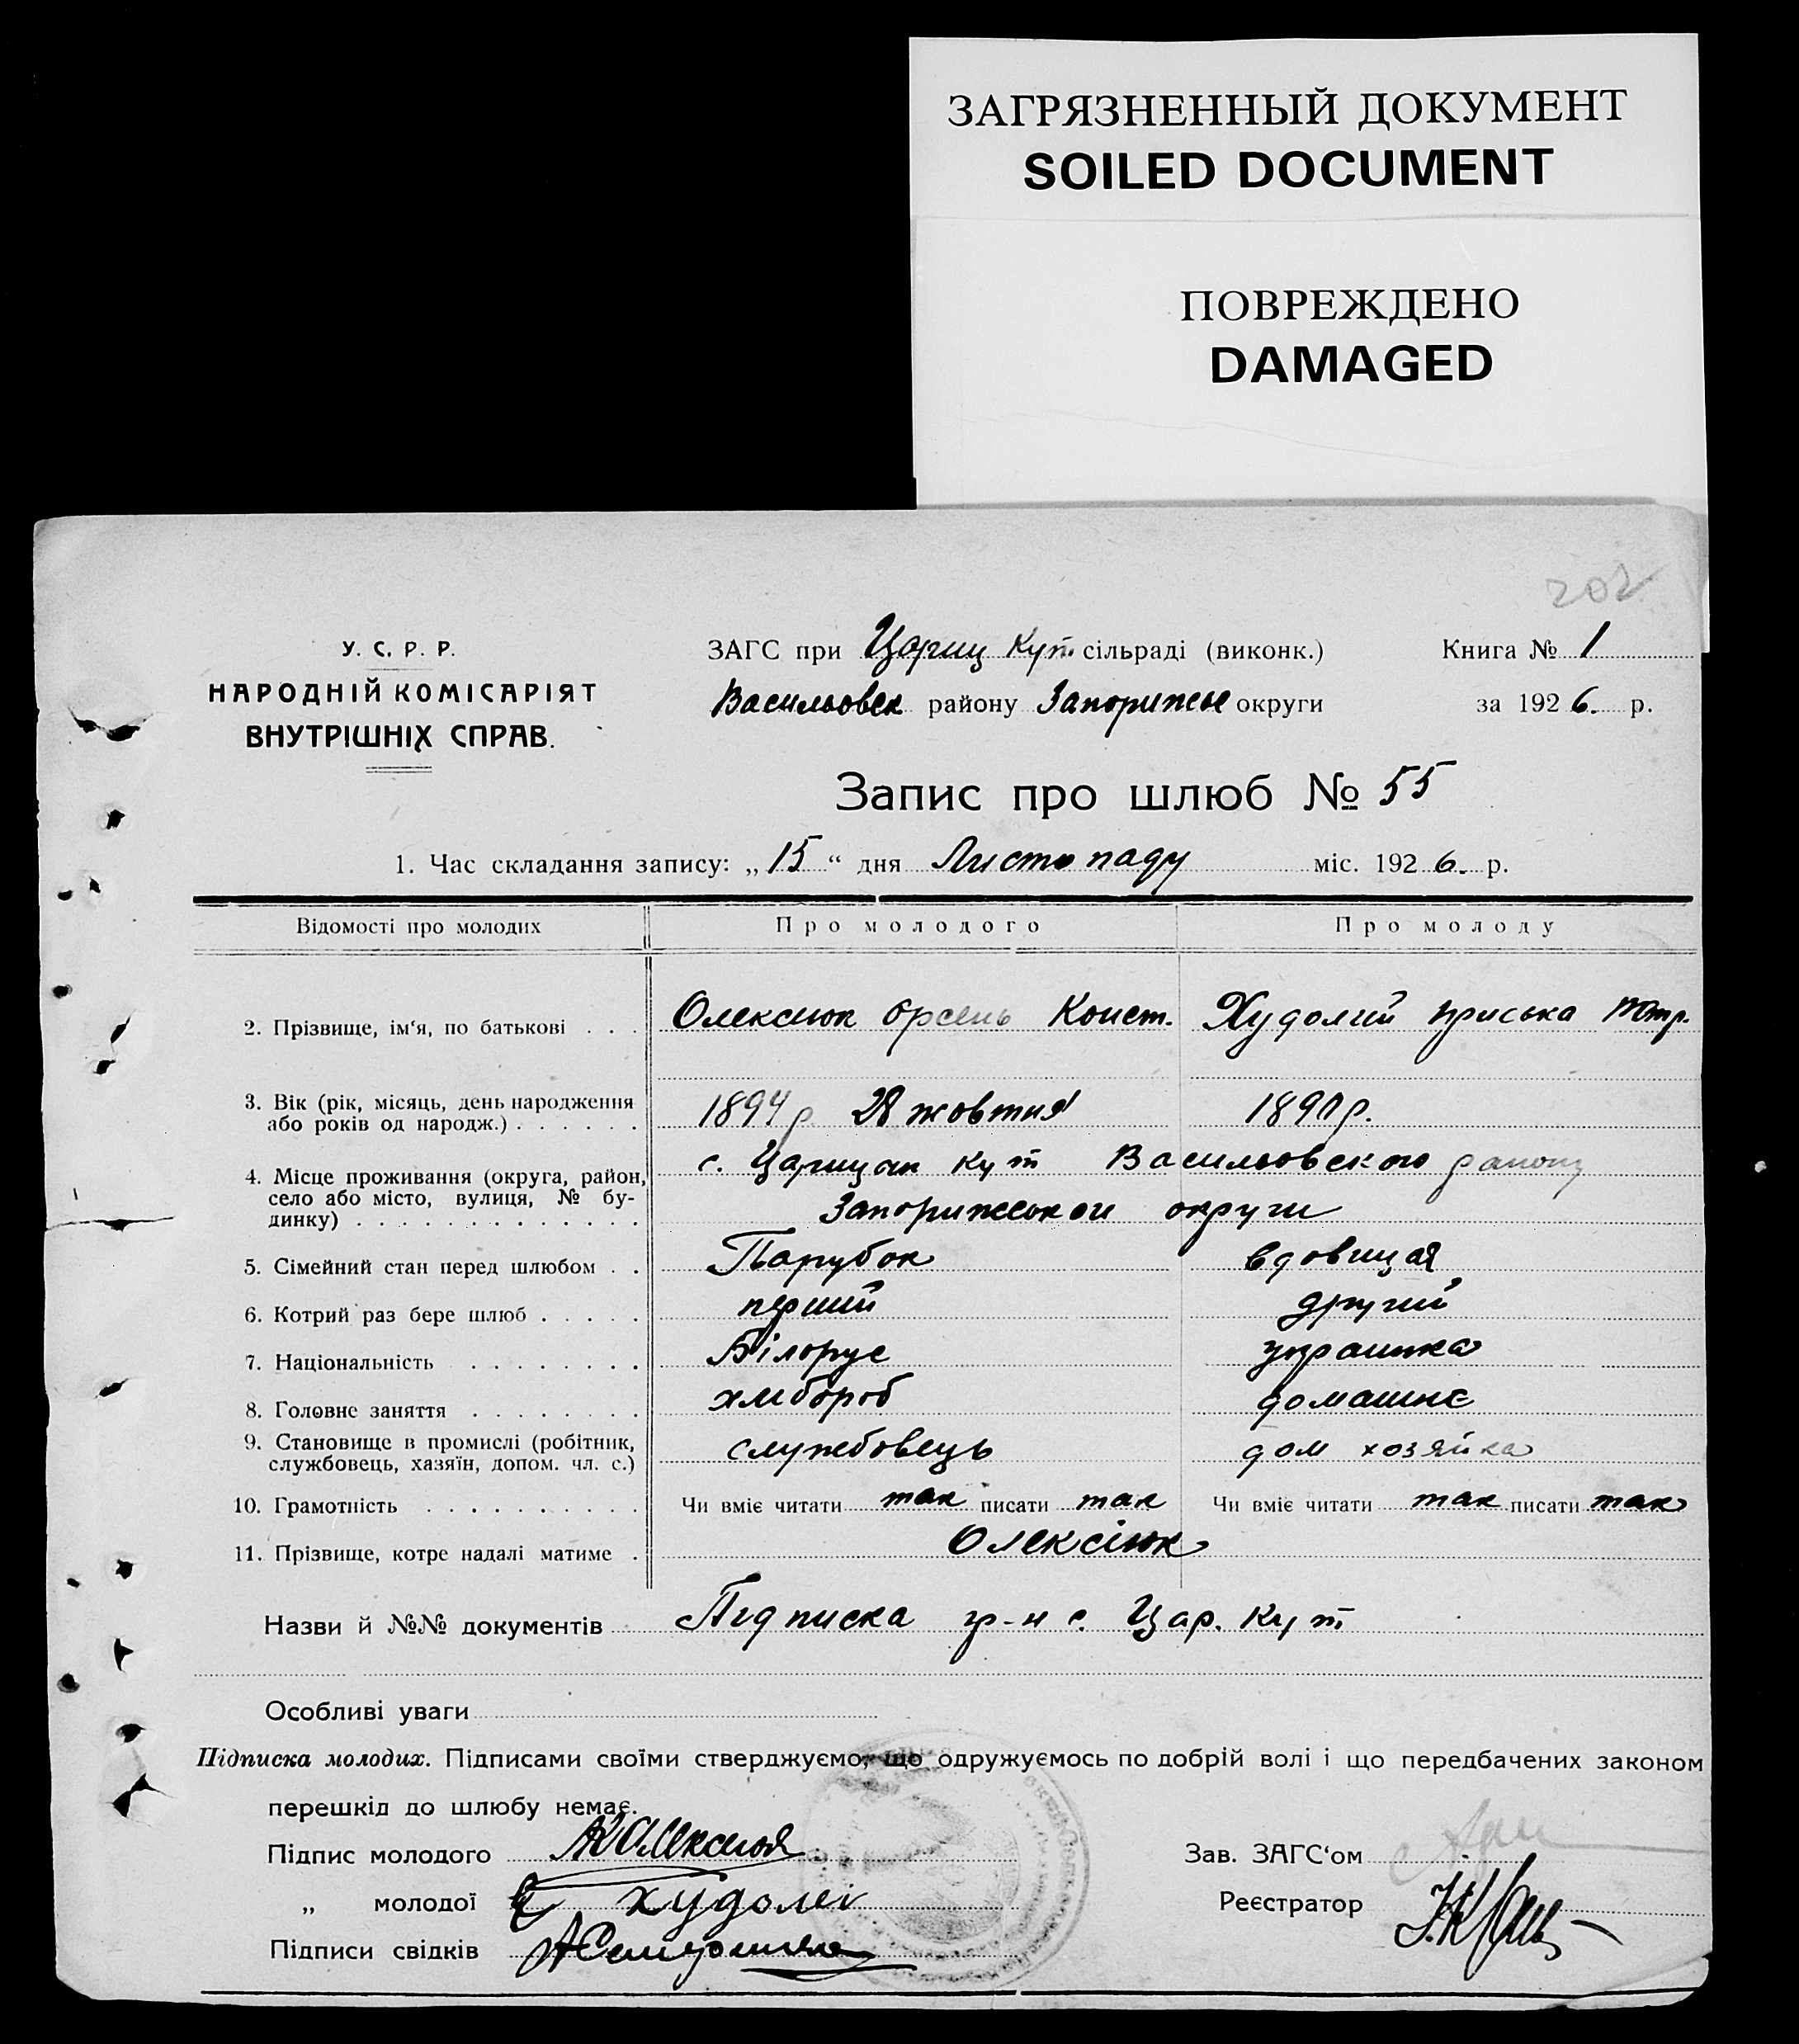 ЗАГРЯЗНЕННЫЙ ДОКУМЕНТ
SOILED DOCUMENT
ПОВРЕЖДЕНО
DAMAGED
202
У. С. Р. Р.
НАРОДНІЙ КОМІСАРІЯТ
ВНУТРІШНІХ СПРАВ.
ЗАГС при Цариц Кут. сільраді (виконк.)
Васильовск району Запорижсь округи
Книга № 1
за 1926. р.
Запис про шлюб № 55
1. Час складання запису: „15“ дня Листопаду міс. 1926. р.
Відомості про молодих Про молодого Про молоду
2. Прізвище, ім‘я, по батькові . . . Олексиюк Орсень Конст. Худолий Приська Петр.
3. Вік (рік, місяць, день народження
або років од народж.) . . . . . . 1894 р. 28 жовтня 1891 р.
4. Місце проживання (округа, район, с. Царицин Кут Васильовского району
село або місто, вулиця, № бу-
динку) . . . . . . . . . . . . . Запорижськои округи
5. Сімейний стан перед шлюбом . . Парубок вдовиця
6. Котрий раз бере шлюб . . . . . перший другий
7. Національність . . . . . . . . Білорус украинка
8. Головне заняття . . . . . . . . хлибороб домашнє
9. Становище в промислі (робітник,
службовець, хазяїн, допом. чл. с.) службовець дом хозяйка
10. Грамотність . . . . . . . . . . Чи вміє читати так писати так Чи вміє читати так писати так
11. Прізвище, котре надалі матиме . Олексіюк
Назви й №№ документів Підписка гр-н с. Цар. Кут
Особливі уваги
Підписка молодих. Підписами своїми стверджуємо, що одружуємось по добрій волі і що передбачених законом
перешкід до шлюбу немає.
Підпис молодого
„ молодої худолі
Підписи свідків
Зав. ЗАГС‘ом
Реєстратор